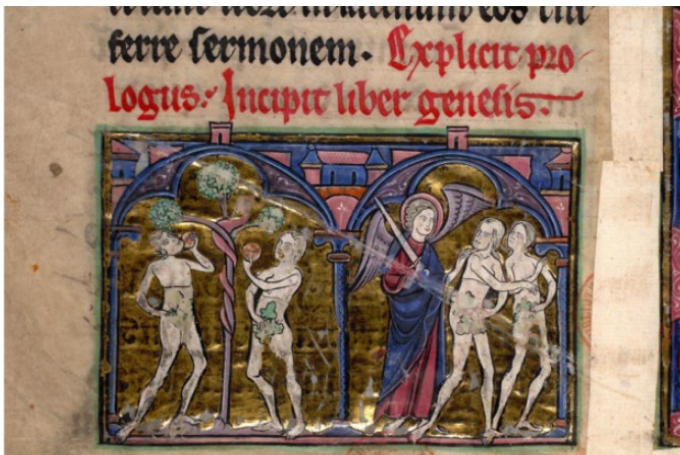 in latinum eos
ferre sermonem. Explicit pro-
logus. Incipit liber genesis.